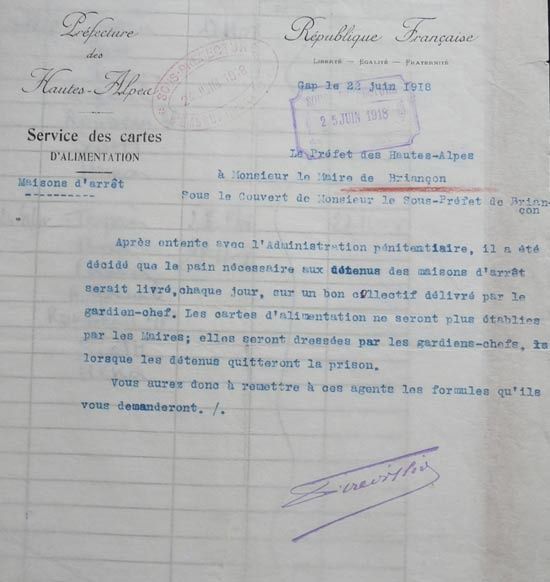 Préfecture
des
Hautes-Alpes
République Française
LIBERTÉ — EGALITÉ — FRATERNITÉ
SOUS-PRÉFECTURE
JUIN 1918
Gap le 22 juin 1918
25 JUIN 1918
Service des cartes
D'ALIMENTATION
Maisons d'arrêt
Le Préfet des Hautes-Alpes
à Monsieur le Maire de Briançon
Sous le Couvert de Monsieur le Sous-Préfet de Brian-
çon
Après entente avec l'Administration pénitentiaire, il a été
décidé que le pain nécessaire aux détenus des maisons d'arrêt
serait livré,chaque jour, sur un bon collectif délivré par le
gardien-chef. Les cartes d'alimentation ne seront plus établies
par les Maires; elles seront dressées par les gardiens-chefs,
lorsque les détenus quitteront la prison.
Vous aurez donc à remettre à ces agents les formules qu'ils
vous demanderont. /.